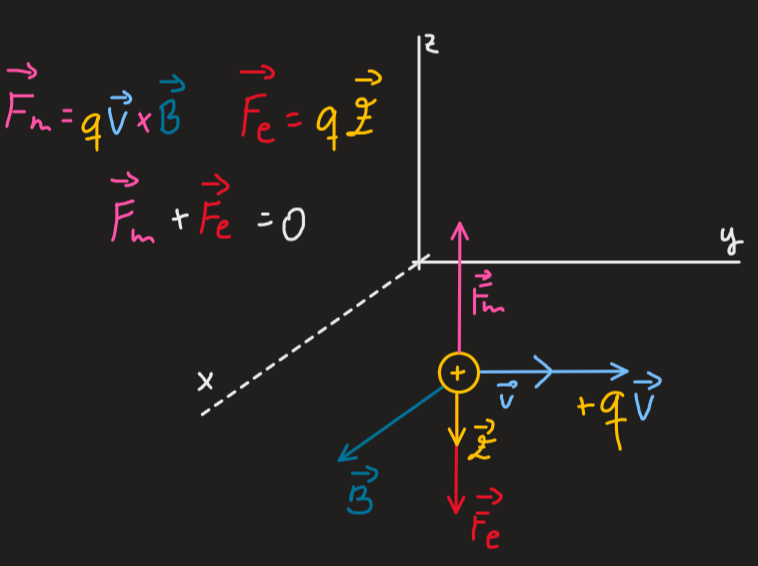 F⃗m = qV⃗ × B⃗ F⃗e = qƵ⃗
F⃗m + F⃗e = 0
z
y
F⃗m
x
+
v⃗
+qV⃗
Ƶ⃗
B⃗
F⃗e